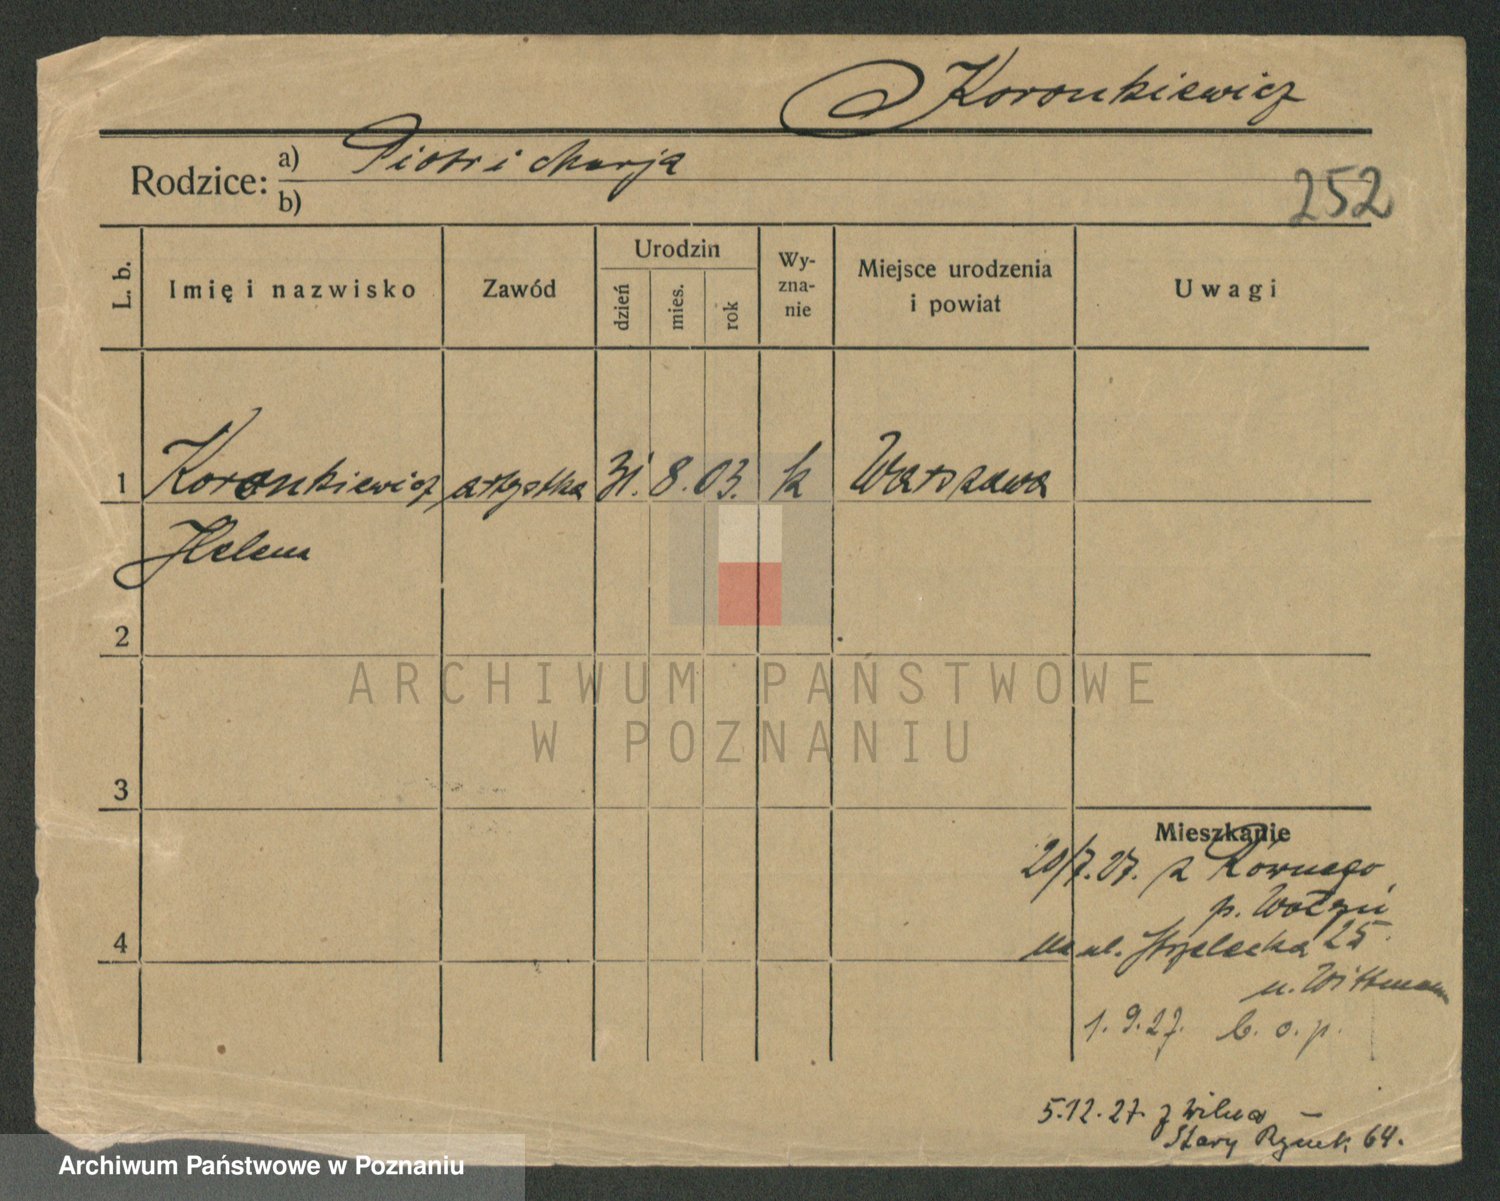 Koronkiewicz
Rodzice: a) Piotr i Marja
b)
252
L. b.
Imię i nazwisko
Zawód
Urodzin
dzień
mies.
rok
Wy-
zna-
nie
Miejsce urodzenia
i powiat
Uwagi
1 Koronkiewicz artystka 31. 8. 03. k Warszawa
Helena
2
3
4
Mieszkanie
20/7.27. z Równego
p. Wołyń
na ul. Strzelecka 25
u. Wittmann
1.9.27. b. o. p.
5.12.27. z Wilna –
Stary Rynek 64.
ARCHIWUM PAŃSTWOWE
W POZNANIU
Archiwum Państwowe w Poznaniu